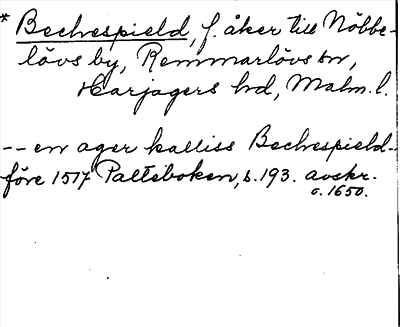 * Bechespield, f. åker till Nöbbe-
lövs by, Remmarlövs sn,
Harjagers hd, Malm. l.
-- en ager kalliss Bechespield--
före 1517 Palteboken, s. 193. avskr.
c. 1650.